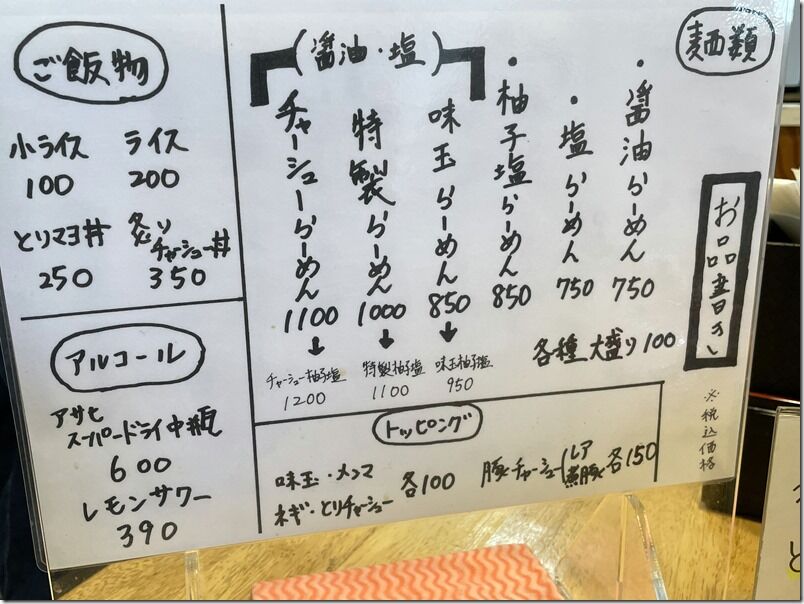 お品書き
※税込価格
麺類
・醤油らーめん 750
・塩らーめん 750
・柚子塩らーめん 850
(醤油・塩)
味玉らーめん 850
↓
味玉柚子塩 950
特製らーめん 1000
↓
特製柚子塩 1100
チャーシューらーめん 1100
↓
チャーシュー柚子塩 1200
各種大盛り100
トッピング
味玉・メンマ
ネギ・とりチャーシュー 各100
豚チャーシュー(レア 煮豚 各150
ご飯物
ライス 200
小ライス 100
炙りチャーシュー丼 350
とりマヨ丼 250
アルコール
アサヒ
スーパードライ中瓶
600
レモンサワー
390